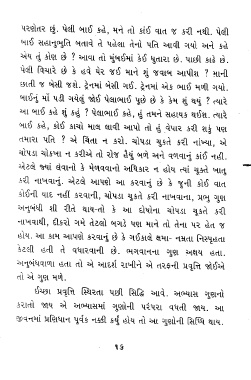 પરણેતર છું. પેલી બાઈ કહે, મને તો કાંઈ વાત જ કરી નથી. પેલી
બાઈ સહાનુભૂતિ બતાવે તે પહેલા તેનો પતિ આવી ગયો અને કહે
એય તું કોણ છે ? આવા તો મુંબઈમાં કંઈ ધુતારા છે. પાછી કાઢે છે.
પેલી વિચારે છે કે હવે ઘેર જઈ માને શું જવાબ આપીશ ? માની
છાતી જ બેસી જશે. ટ્રેનમાં બેસી ગઈ. ટ્રેનમાં એક ભાઈ મળી ગયો.
બાઈનું માં પડી ગયેલું જોઈ પેલાભાઈ પુછે છે કે કેમ શું થયું ? ત્યારે
આ બાઈ કહે શું કહું ? પેલાભાઈ કહે, હું તમને સહાયક થઈશ. ત્યારે
બાઈ કહે, કોઈ કાચો માલ લાવી આપો તો હું વેપાર કરી શકું પણ
તમારા પતિ ? એ ચિંતા ન કરો. ચોપડા ચૂકતે કરી નાંખ્યા, એ
ચોપડા ચોકખા ન કરીએ તો રોજ હૈયું બળે અને વળવાનું કાંઈ નહી.
એટલે જ્યાં લેવાનો કે મેળવવાનો અધિકાર ન હોય ત્યાં ચૂકતે ખાતુ
કરી નાખવાનું. એટલે આપણે આ કરવાનું છે કે જુની કોઈ વાત
કોઈની યાદ નહીં કરવાની, ચોપડા ચૂકતે કરી નાખવાના, પ્રભુ ગુણ
અનુબંધી શ્રી રીતે થાય-તો કે આ દોષોના ચોપડા ચૂકતે કરી
નાખવાથી, દીકરો ગમે તેટલો બગડે પણ માને તો તેના પર હેત જ
હોય. આ કામ આપણે કરવાનું છે કે ગઈકાલે ક્ષમા- નમ્રતા નિસ્પૃહતા
કેટલી હતી તે વધારવાની છે. ભગવાનના ગુણ અક્ષય હતા.
અનુબંધવાળા હતા તો એ આદર્શ રાખીને એ તરફની પ્રવૃત્તિ જોઈએ
તો એ ગુણ મળે.
ઈચ્છા પ્રવૃત્તિ સ્થિરતા પછી સિદ્ધિ આવે. અભ્યાસ ગુણનો
કરાતો જાય એ અભ્યાસમાં ગુણોની પરંપરા વધતી જાય. આ
જીવનમાં પ્રણિધાન પૂર્વક નક્કી કર્યું હોય તો આ ગુણોની સિધ્ધિ થાય.
૧૬